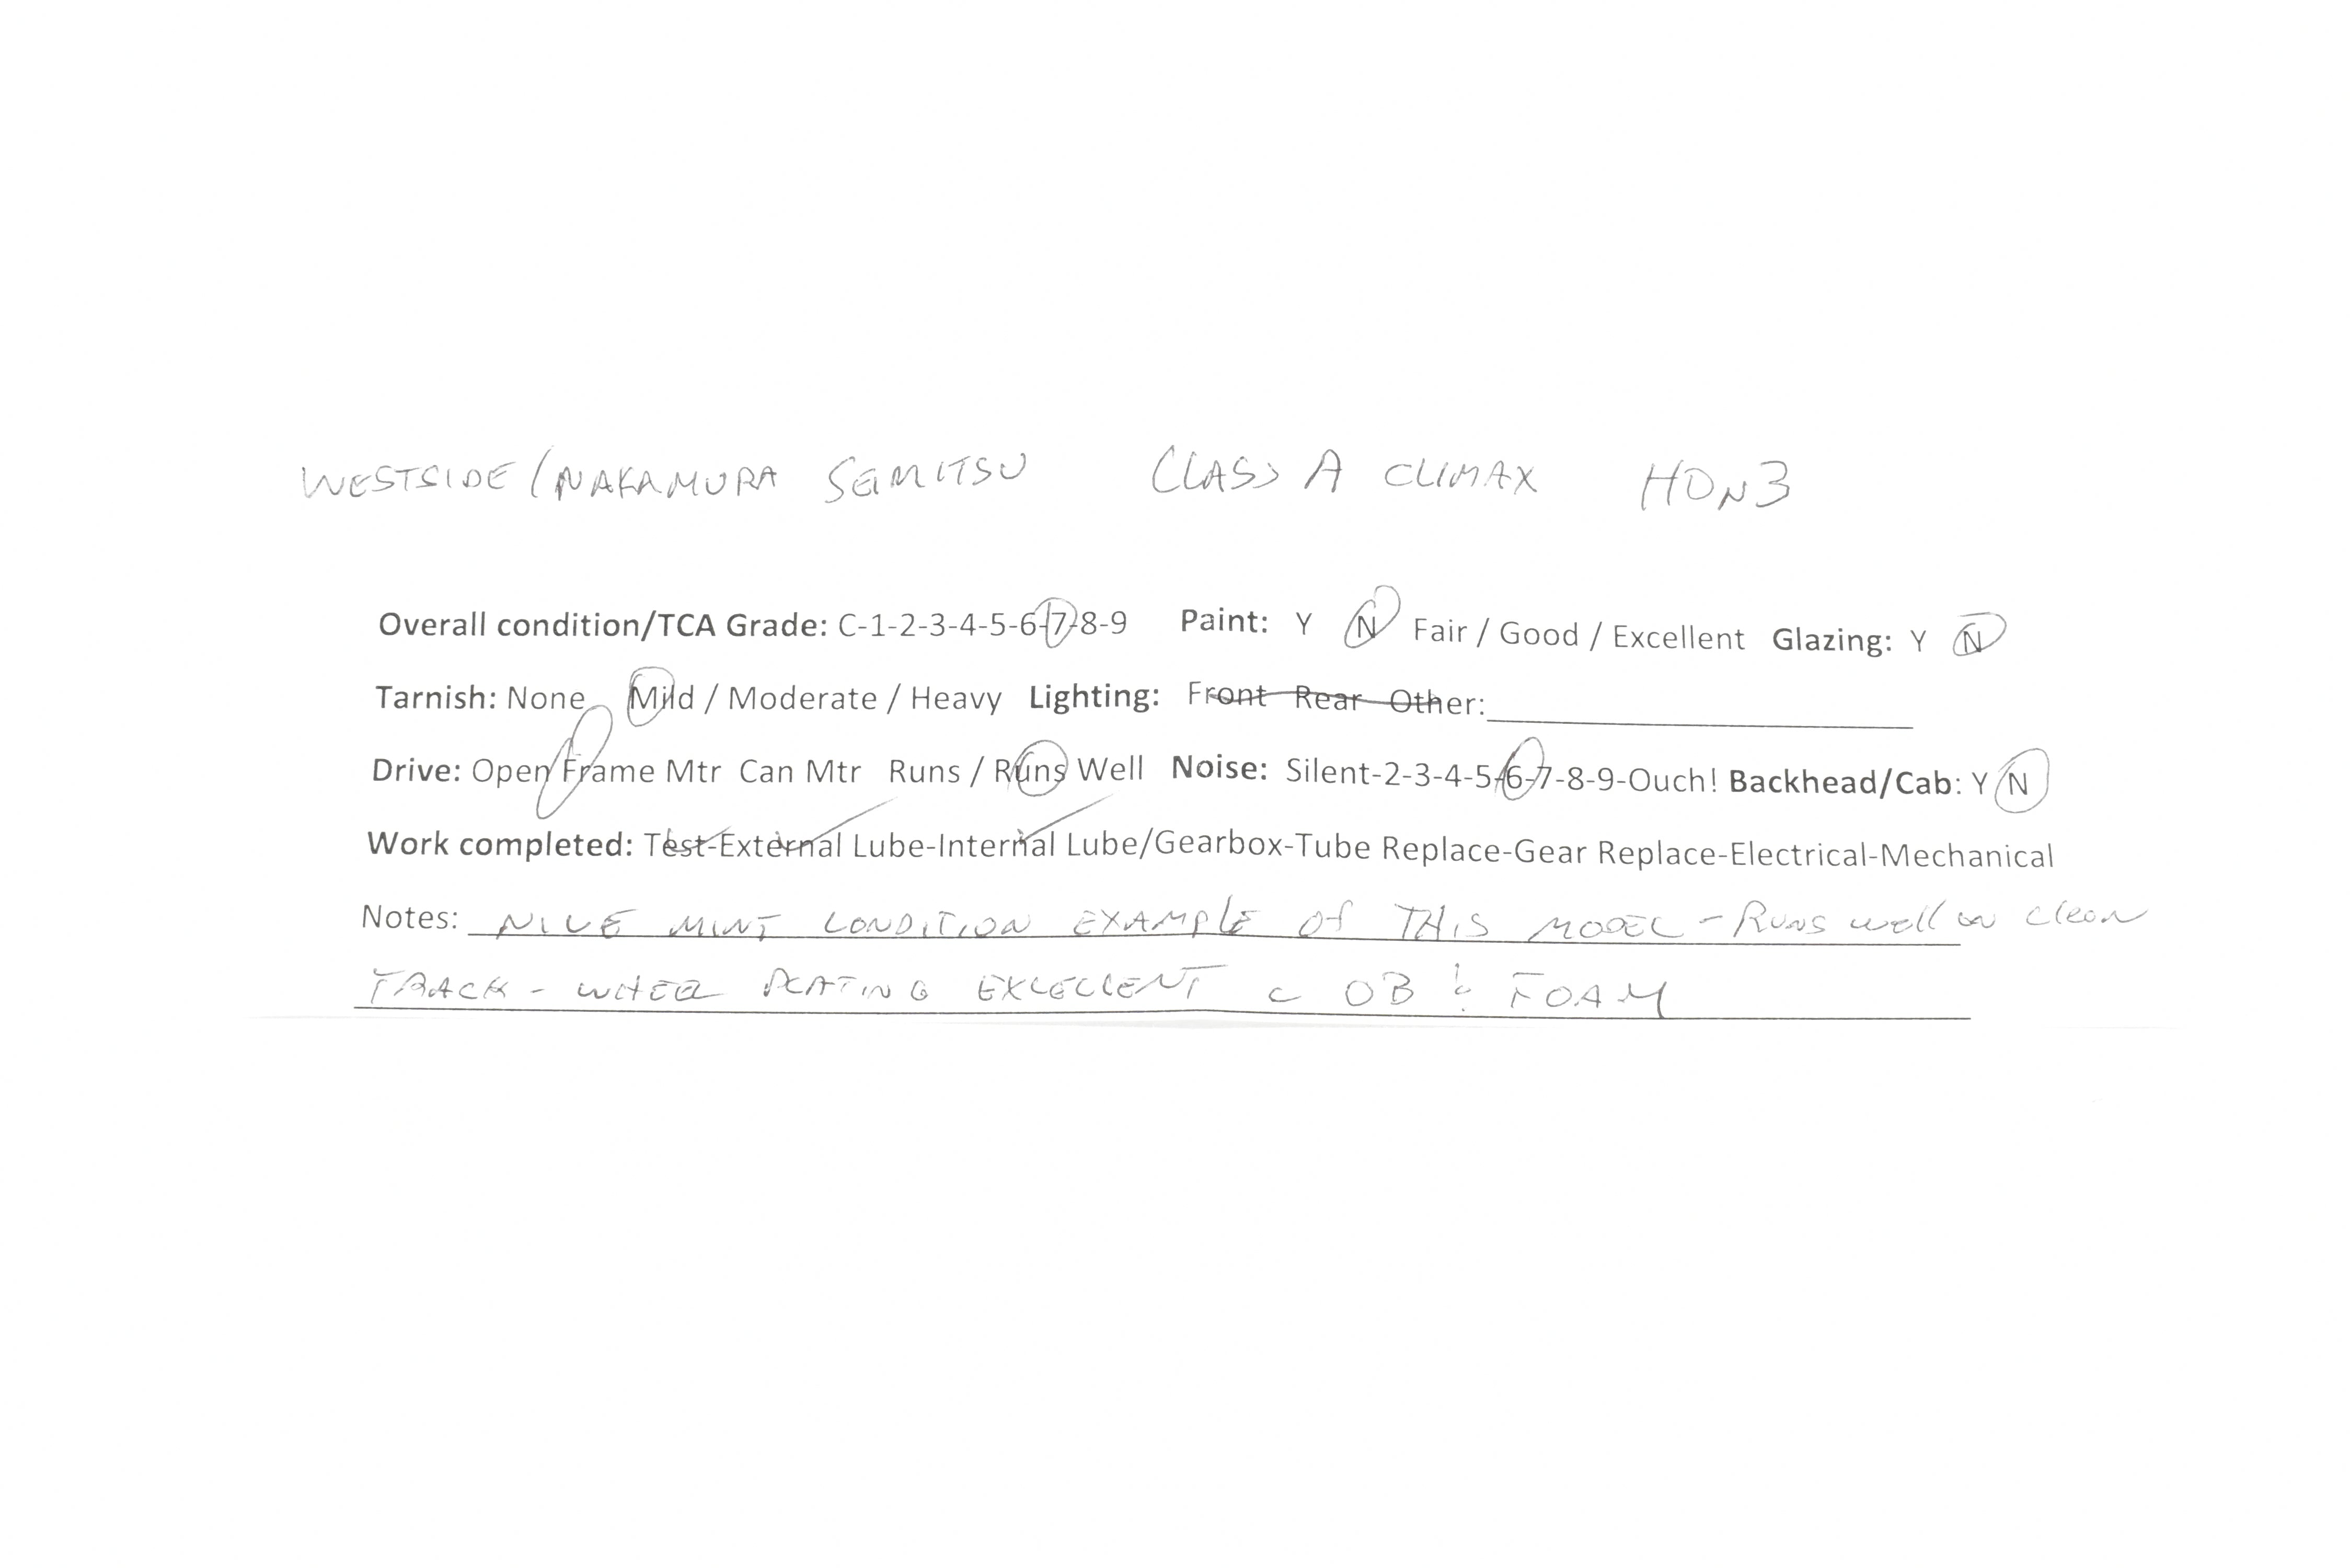 WESTSIDE/NAKAMURA SEMITSU CLASS A CLIMAX HOn3
Overall condition/TCA Grade: C-1-2-3-4-5-6-7-8-9 Paint: Y N Fair / Good / Excellent Glazing: Y N
Tarnish: None Mild / Moderate / Heavy Lighting: Front Rear Other:
Drive: Open Frame Mtr Can Mtr Runs / Runs Well Noise: Silent-2-3-4-5-6-7-8-9-Ouch! Backhead/Cab: Y N
Work completed: Test-External Lube-Internal Lube/Gearbox-Tube Replace-Gear Replace-Electrical-Mechanical
Notes: NICE MINT CONDITION EXAMPLE Of THIS MODEL - Runs well on clean
TRACK - WHEEL PLATING EXCELLENT c OB & FOAM